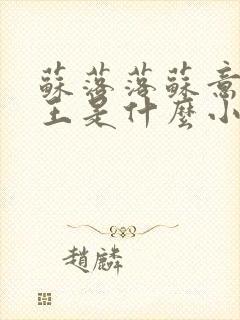 蘇落落蘇意
王是什麼小
趙麟